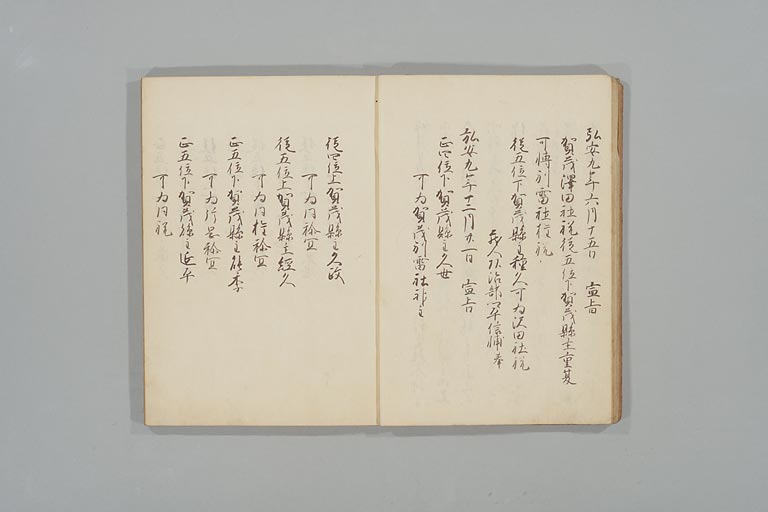 弘安九年六月十五日　宣旨
賀茂澤田社祝従五位下賀茂縣主重
可轉別雷社権祝
従五位下賀茂縣主種久可为沢田社祝
蔵人頭治部卿平信輔奉
弘安九年十二月廿一日　宣旨
正四位下賀茂縣主久世
可为賀茂別雷社神主
従四位上賀茂縣主久政
可为同祢宜
従五位上賀茂縣主經久
可为同権祢宜
正五位下賀茂縣主能季
可为片岳祢宜
正五位下賀茂縣主延平
可为同祝